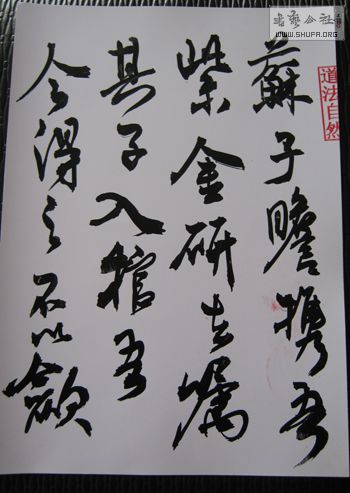 書藝公社
WWW.SHUFA.ORG
道法自然
蘇子瞻携吾
紫金研去嘱
其子入棺吾
今得之不以歛